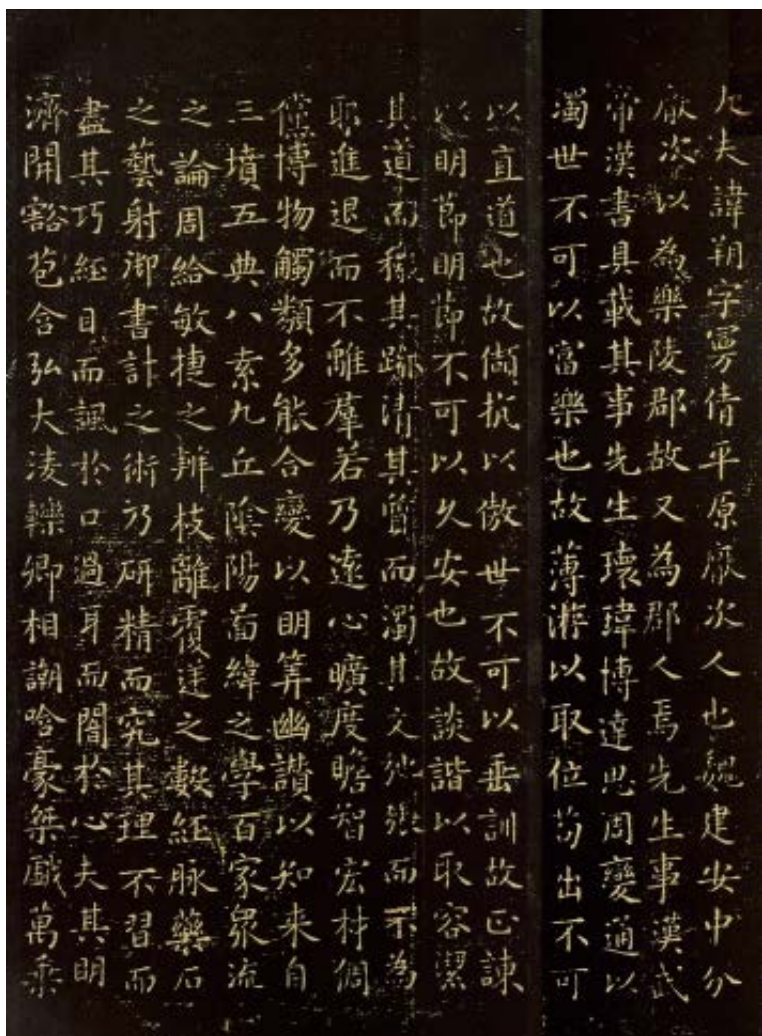 大夫諱朔字曼倩平原厭次人也魏建安中分
厭次以為樂陵郡故又為郡人焉先生事漢武
帝漢書具載其事先生瓌瑋博達思周變通以
濁世不可以富樂也故薄遊以取位苟出不可
以直道也故儻抗以傲世不可以垂訓故正諫
以明節明節不可以久安也故談諧以取容潔
其道而穢其跡清其質而濁其文弛張而不為
耶進退而不離羣若乃遠心曠度贍智宏材倜
儻博物觸類多能合變以明筭幽讚以知来自
三墳五典八索九丘陰陽啚緯之學百家衆流
之論周給敏捷之辨枝離覆逆之數經脉藥石
之藝射御書計之術乃研精而究其理不習而
盡其巧經目而諷於口過耳而闇於心夫其明
濟開豁苞含弘大淩轢卿相謿哈豪桀戲萬乘